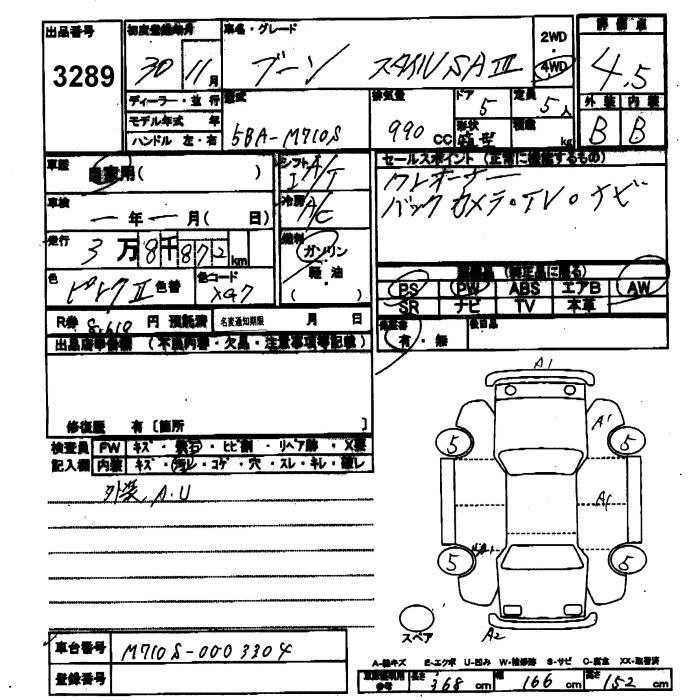 出品番号 3289
初度登録年月 30 11月
車名・グレード ブーン スタイルSAⅢ
2WD・4WD
評価点 4.5
外装 B 内装 B
ディーラー・並行
モデル年式 年
ハンドル 左・右
型式 5BA-M710S
排気量 990 CC
ドア 5
形状
定員 5人
積載 kg
車歴 自家用( )
車検 ー年ー月( 日)
走行 3万8千872km
色 ピンクⅡ 色替
色コード
シフト
冷房 A/C
燃料 ガソリン・軽油 ( )
セールスポイント(正常に機能するもの)
ワンオーナー
バックカメラ・TV・ナビ
装備品(純正品に限る)
BS PW ABS エアB AW
SR ナビ TV 本革
保証書 有・無
後日品
R券 円 預託済
名変通知期限 月 日
出品店申告欄(不具内容・欠品・注意事項等記載)
修復歴 有〔箇所 〕
検査員 FW キズ・飛石・ヒビ割・リペア跡・X要
記入欄 内装 キズ・汚レ・コゲ・穴・スレ・キレ・破レ
外装 A.U
A1
A'
5 5
A1
5 5
スペア
A2
車台番号 M710S-0003304
登録番号
A-線キズ E-エクボ U-凹み W-補修跡 S-サビ C-腐食 XX-取替済
長さ 368cm 幅 166cm 高さ 152cm
参考